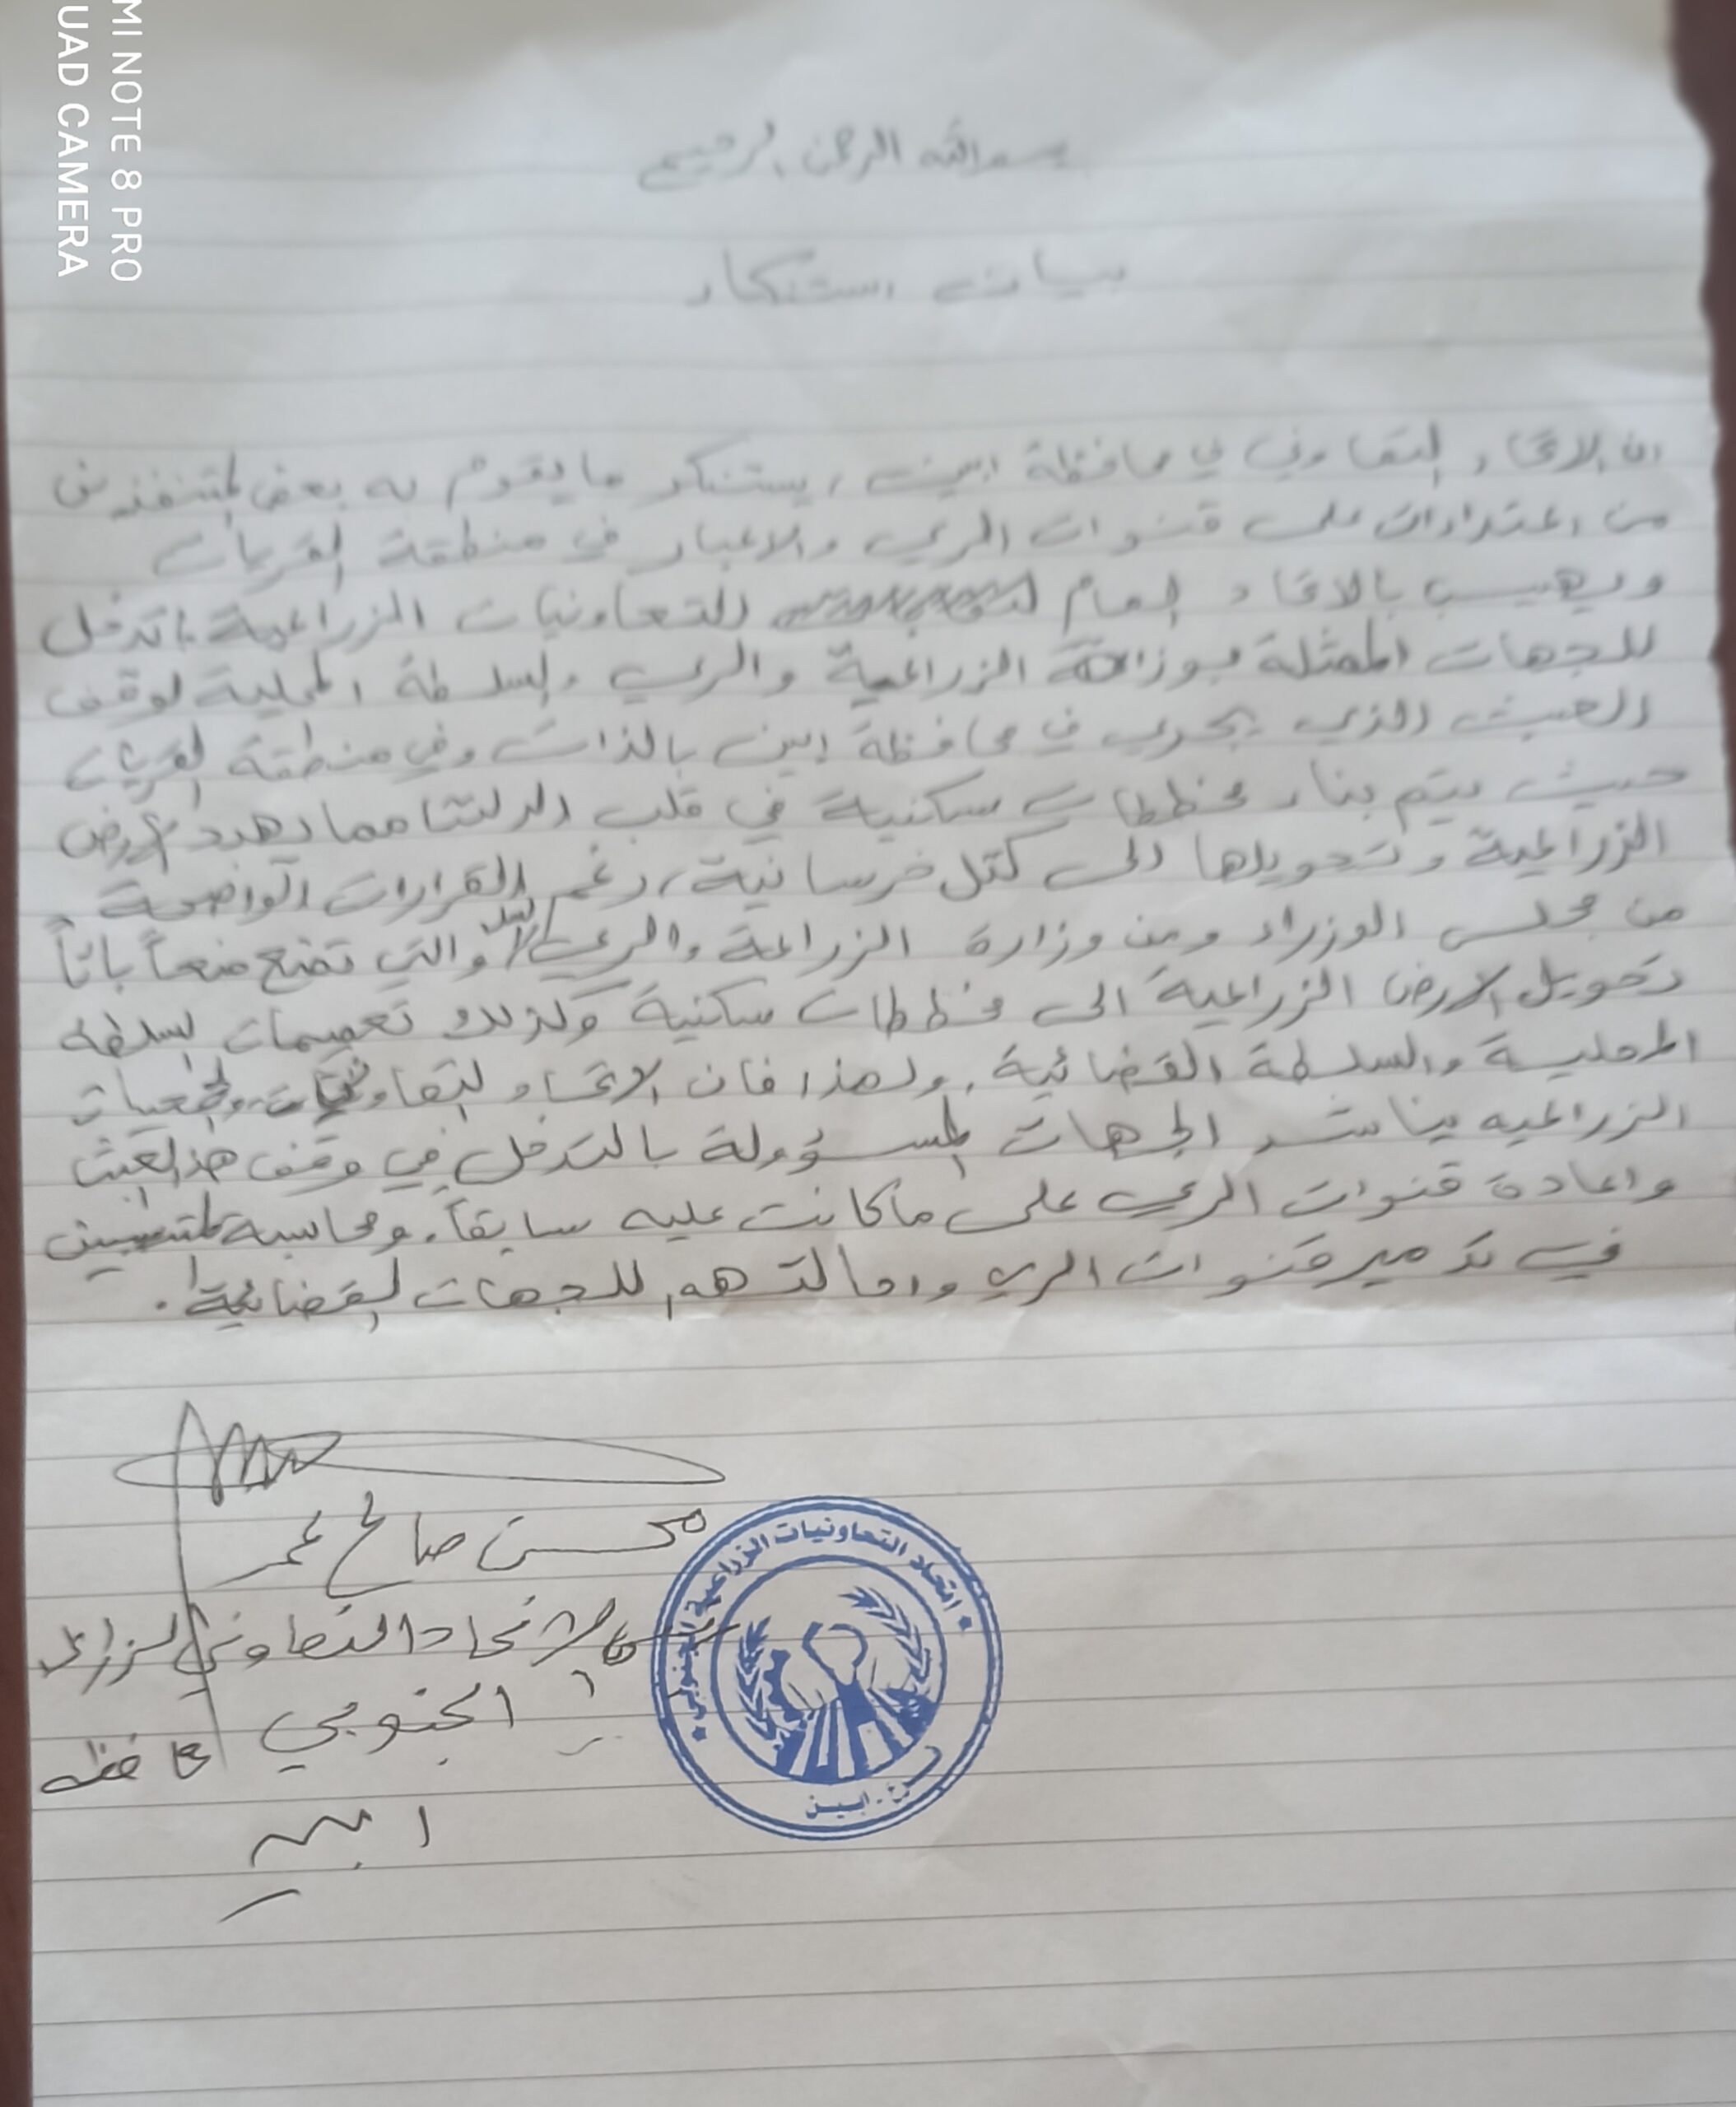 بسم الله الرحمن الرحيم
بيان استنكار
ان الاتحاد التعاوني في محافظة ابين ، يستنكر ما يقوم به بعض المتنفذين
من اعتداءات على قنوات الري والاعبار في منطقة القريات
ويهيب بالاتحاد العام للتعاونيات الزراعية بالتدخل
للجهات الممثلة بوزارة الزراعية والري والسلطة المحلية لوقف
العبث الذي يجري في محافظة ابين بالذات وفي منطقة القريات
حيث يتم بناء مخططات سكنية في قلب الدلتا مما يهدد الارض
الزراعية وتحويلها الى كتل خرسانية، رغم القرارات الواضحة
من مجلس الوزراء ومن وزارة الزراعة والري والتي تمنع منعاً باتاً
تحويل الارض الزراعية الى مخططات سكنية وكذلك تعميمات السلطه
المحلية والسلطة القضائية. ولهذا فان الاتحاد والجمعيات
الزراعيه يناشد الجهات المسؤولة بالتدخل في وقف هذا العبث
واعادة قنوات الري على ما كانت عليه سابقاً. ومحاسبة
في تدمير قنوات الري واحالتهم للجهات القضائية.
محسن صالح
الاتحاد التعاوني الزراعي
الجنوبي محافظه
ابين
اتحاد التعاونيات الزراعية الجنوبي
ابين
MI NOTE 8 PRO
UAD CAMERA